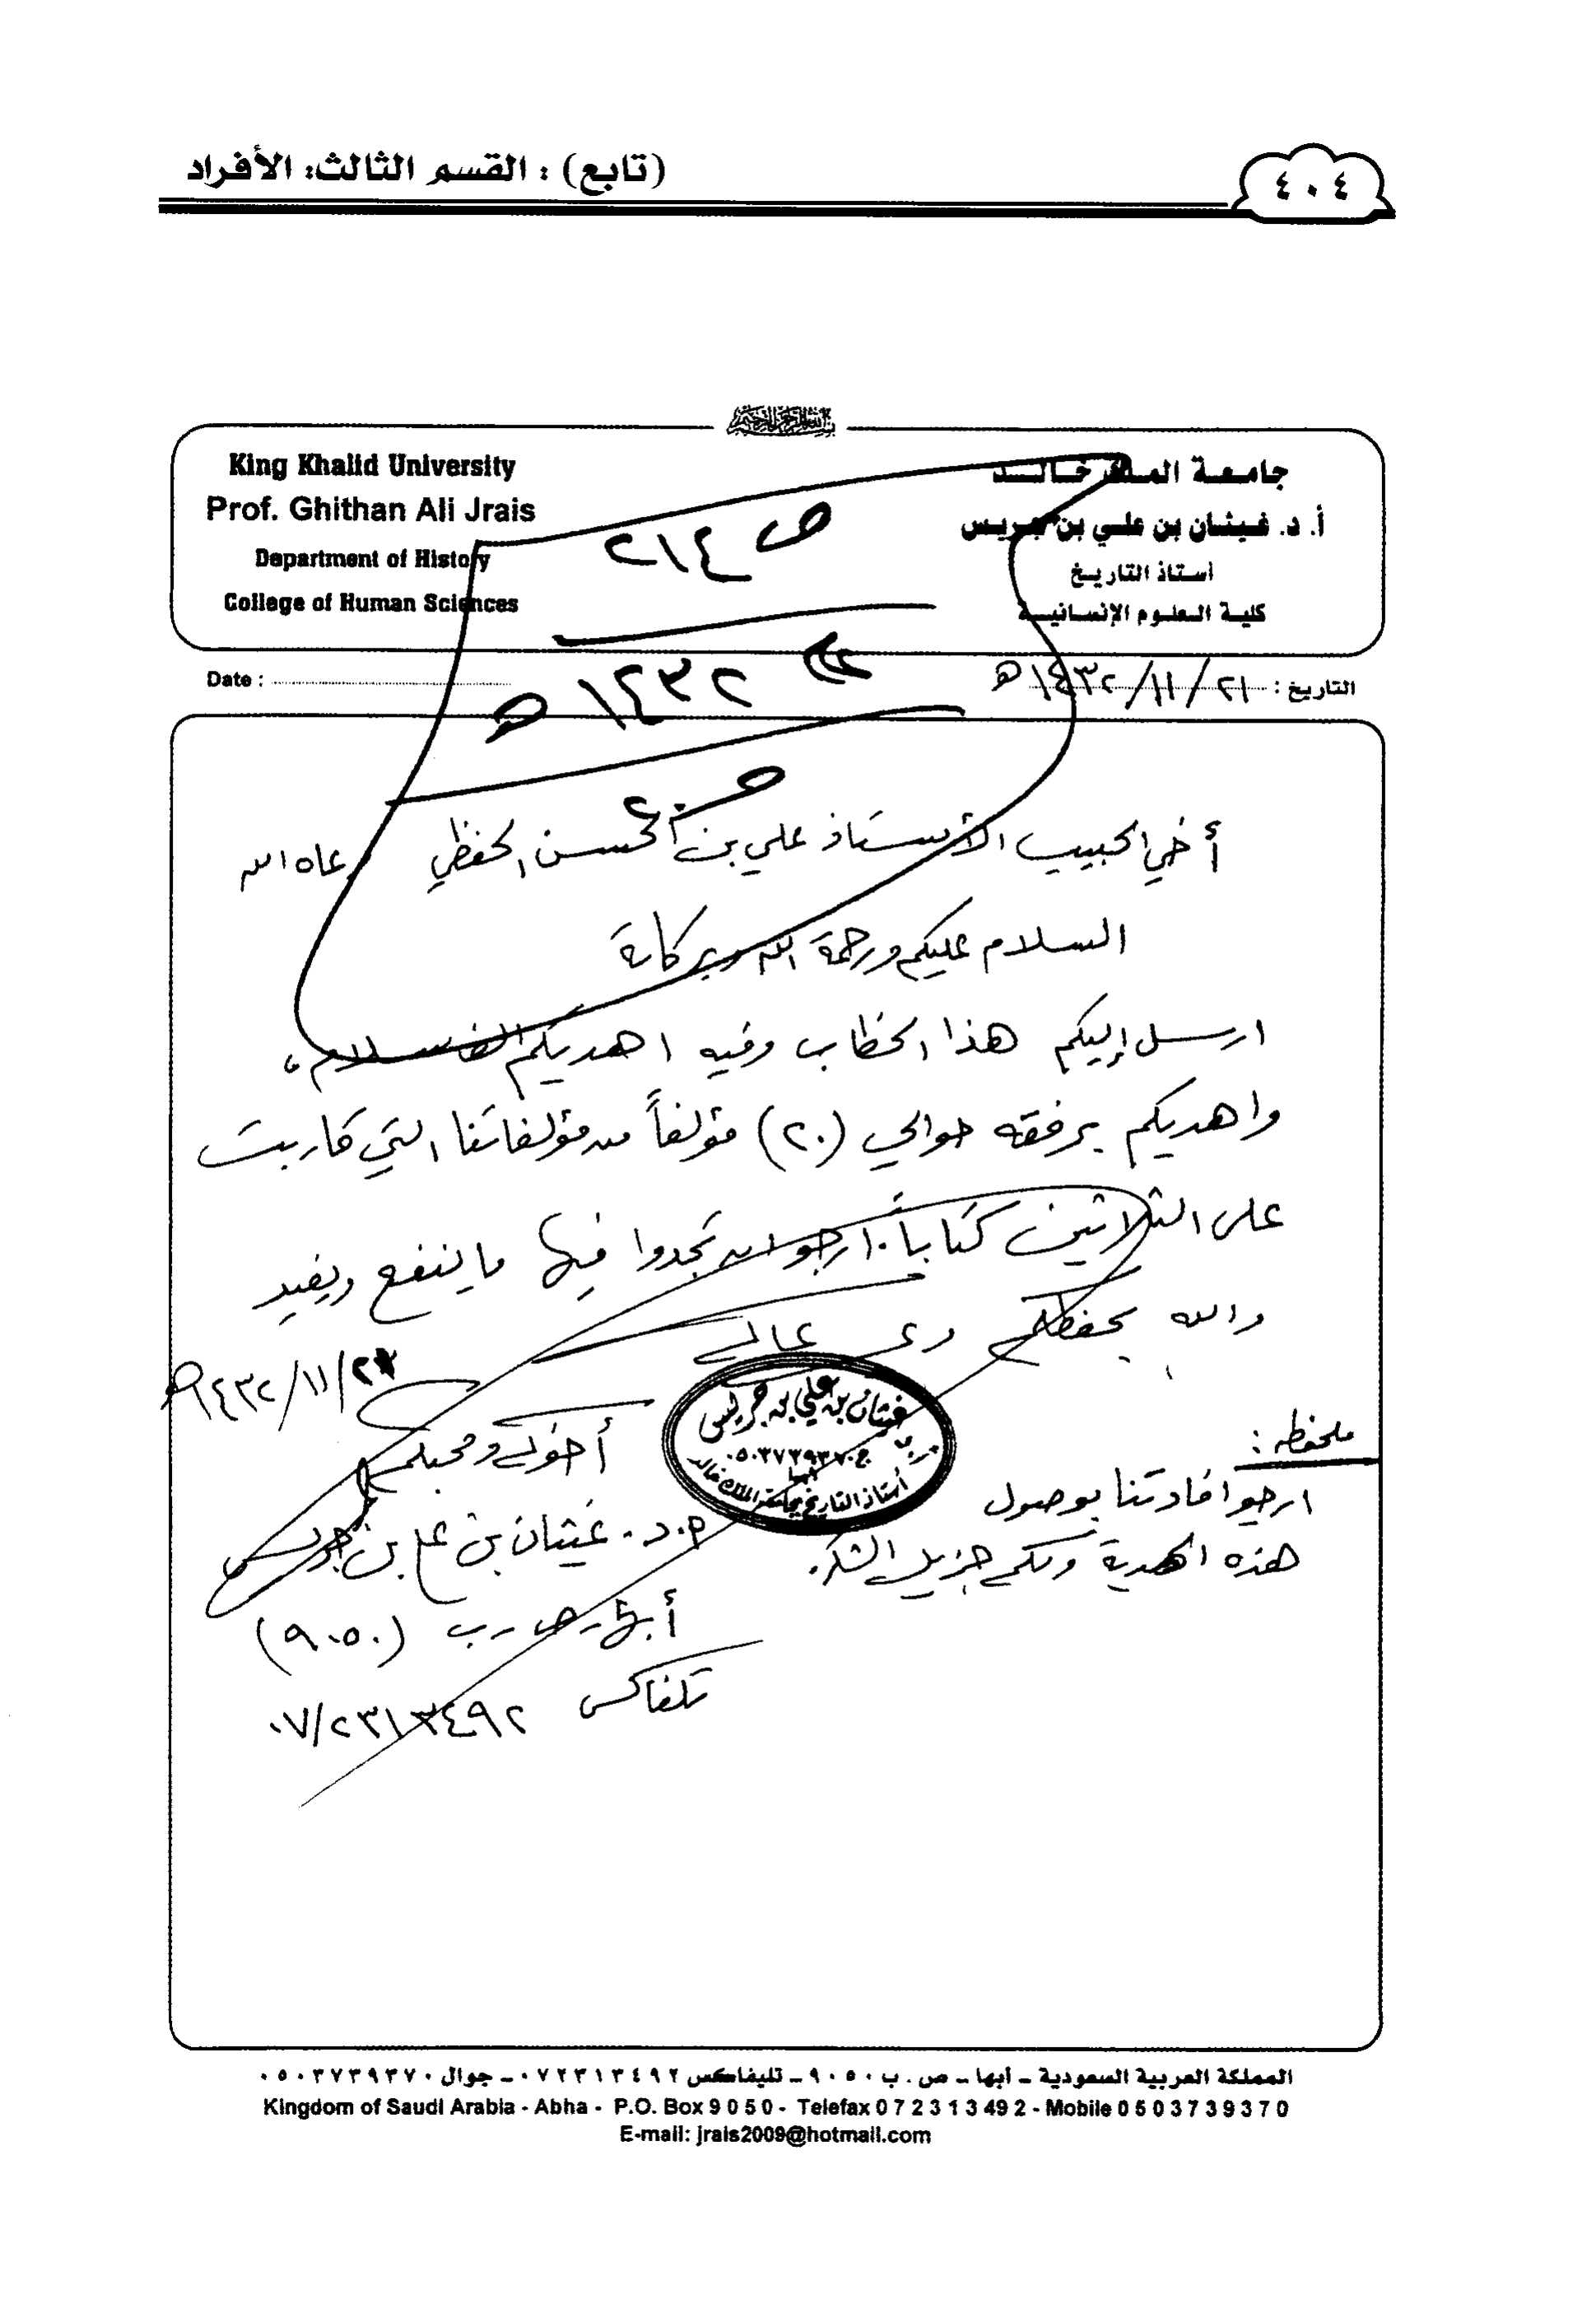 (تابع) : القسم الثالث: الأفراد
٤٠٤
King Khalid University
Prof. Ghithan Ali Jrais
Department of History
College of Human Sciences
جامعة الملك خالد
أ. د. غيثان بن علي بن جريس
أستاذ التاريخ
كلية العلوم الإنسانية
ص ٢١٤
١٤٣٢ هـ
Date :
التاريخ : ٢١ / ١١ / ١٤٣٢هـ
أخي الحبيب الأستاذ علي بن الحسن الحفظي رعاه الله
السلام عليكم ورحمة الله وبركاته
ارسل إليكم هذا الخطاب وفيه اهديكم السلام،
واهديكم برفقه حوالي (٢٠) مؤلفاً من مؤلفاتنا التي قاربت
على الثلاثين كتاباً. ارجو ان تجدوا فيها ما ينفع ويفيد
والله يحفظكم
/ ١١ / ١٤٣٢هـ
غيثان بن علي بن جريس
ج ٠٥٠٣٧٣٩٣٧٠
أبها
أستاذ التاريخ بجامعة الملك خالد
أخوكم ومحبكم
أ.د. غيثان بن علي بن جريس
أبها - ص - ب (٩٠٥٠)
تلفاكس ٠٧/٢٣١٣٤٩٢
ملحظه :
ارجو افادتنا بوصول
هذه الهدية ولكم جزيل الشكر.
المملكة العربية السعودية - أبها - ص. ب ٩٠٥٠ - تليفاكس ٠٧٢٣١٣٤٩٢ - جوال ٠٥٠٣٧٣٩٣٧٠
Kingdom of Saudi Arabia - Abha - P.O. Box 9 0 5 0 - Telefax 0 7 2 3 1 3 4 9 2 - Mobile 0 5 0 3 7 3 9 3 7 0
E-mail: jrais2009@hotmail.com